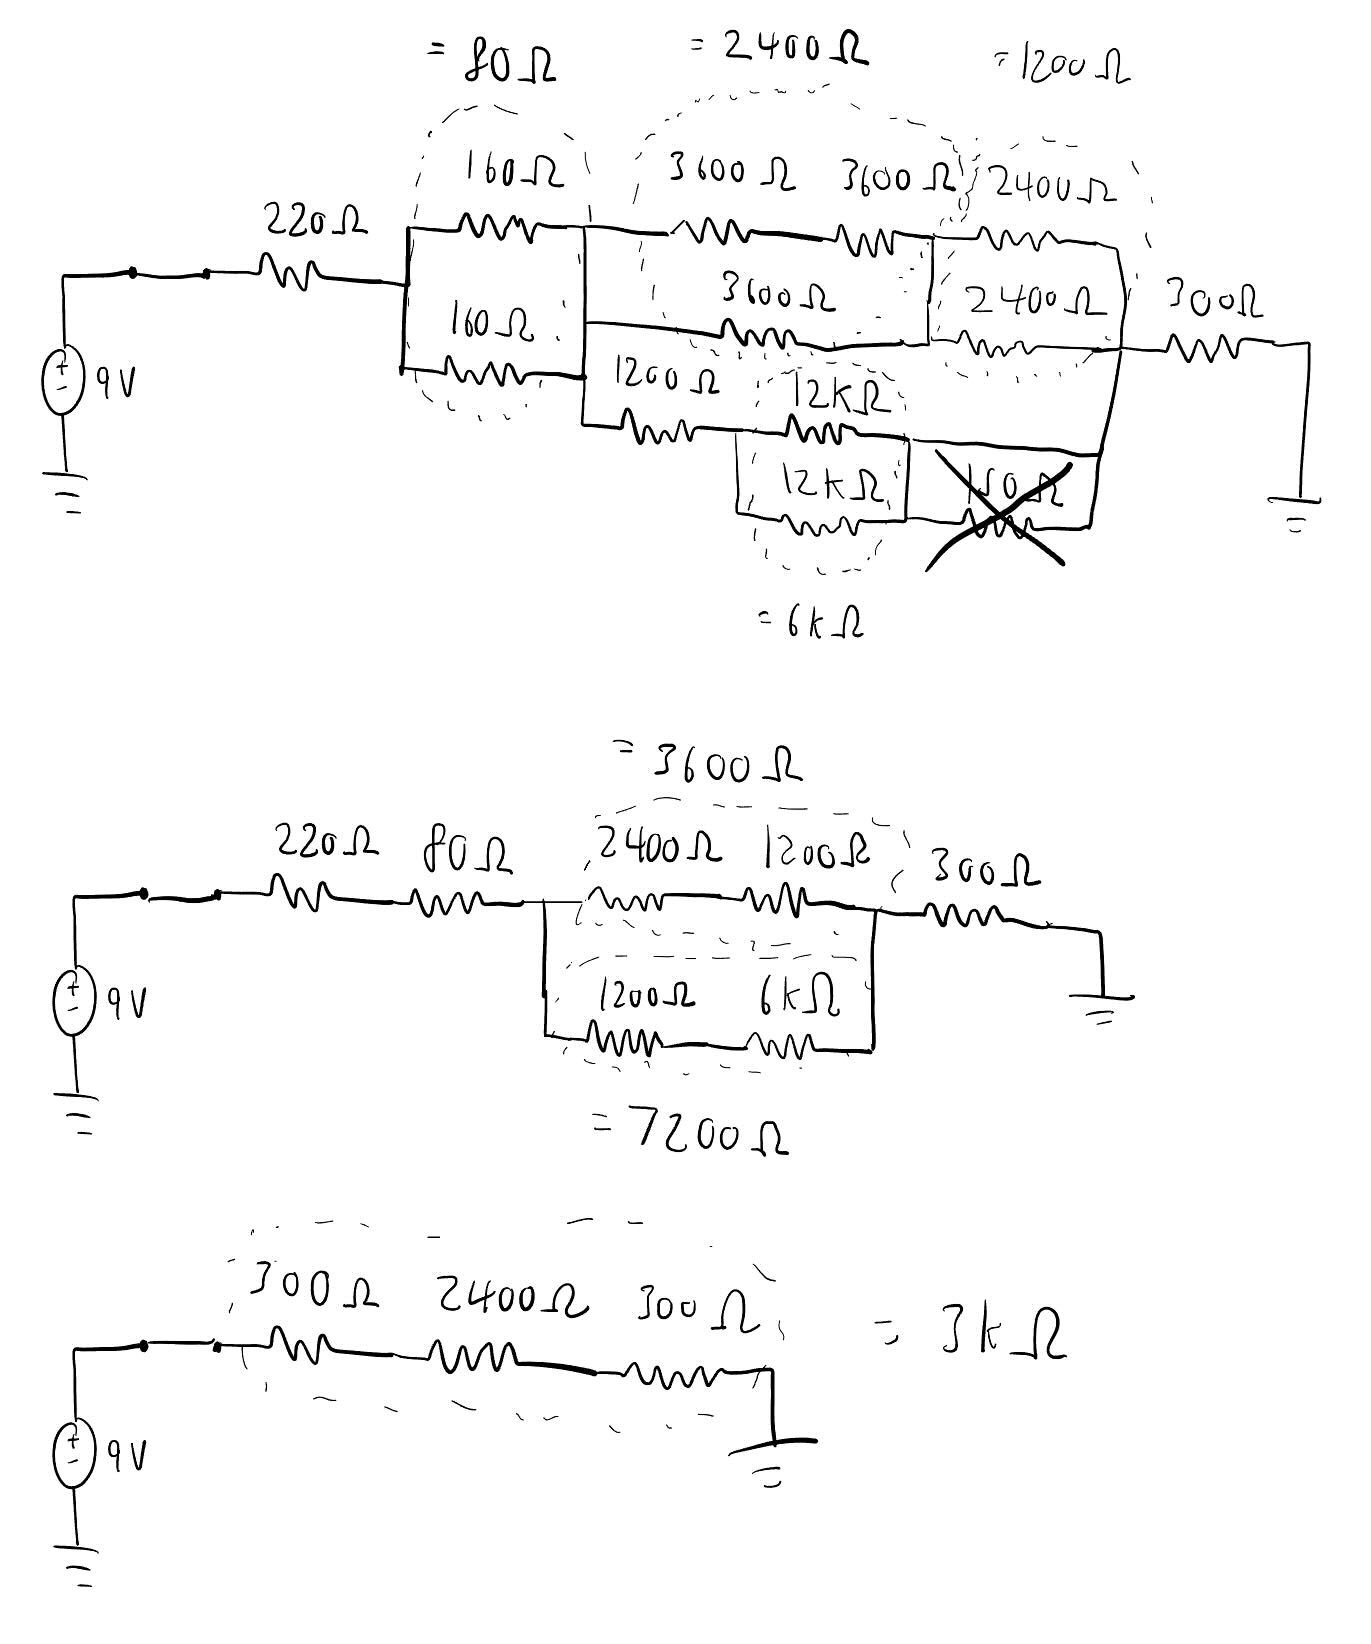 = 80Ω = 2400Ω = 1200Ω
160Ω 3600Ω 3600Ω 2400Ω
220Ω
160Ω 3600Ω 2400Ω 300Ω
+
- 9V 1200Ω 12kΩ
12kΩ 150Ω
= 6kΩ
= 3600Ω
220Ω 80Ω 2400Ω 1200Ω 300Ω
+
- 9V 1200Ω 6kΩ
= 7200Ω
300Ω 2400Ω 300Ω = 3kΩ
+
- 9V